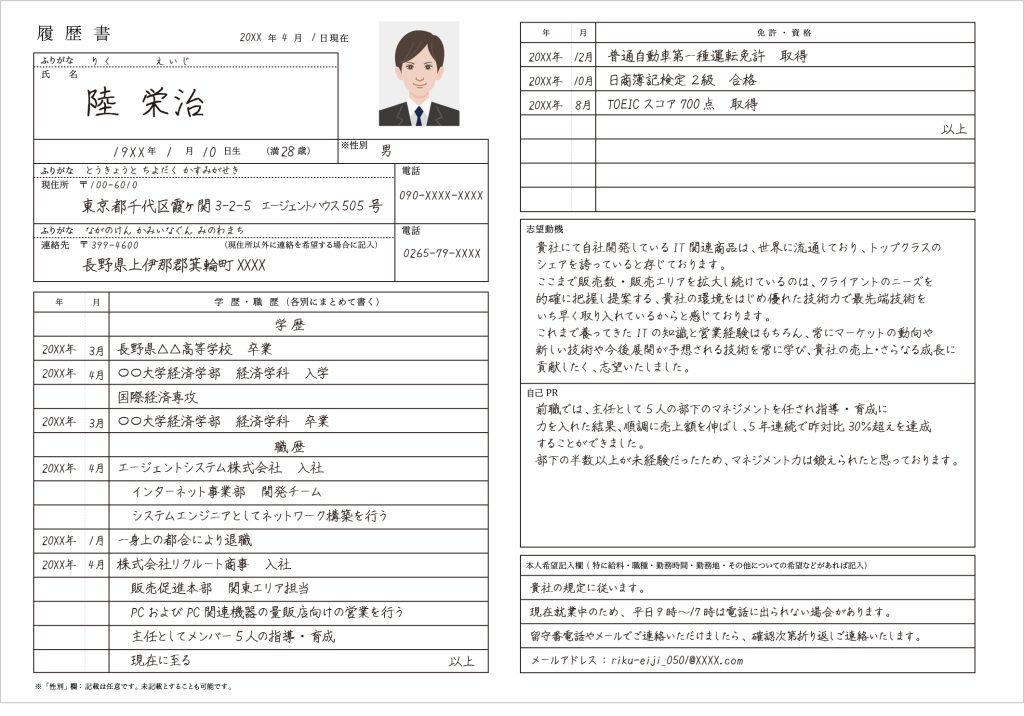 履 歴 書
20XX 年 4 月 1 日現在
ふりがな りく えいじ
氏 名
陸 栄治
19XX 年 1 月 10 日生 (満 28 歳)
※性別 男
ふりがな とうきょうと ちよだく かすみがせき
現住所 〒100-6010
東京都千代区霞ヶ関 3-2-5 エージェントハウス 505 号
電話
090-XXXX-XXXX
ふりがな ながのけん かみいなぐん みのわまち
連絡先 〒399-4600 (現住所以外に連絡を希望する場合に記入)
長野県上伊那郡箕輪町 XXXX
電話
0265-79-XXXX
年 月 学 歴・職 歴 (各別にまとめて書く)
学 歴
20XX年 3月 長野県△△高等学校 卒業
20XX年 4月 〇〇大学経済学部 経済学科 入学
国際経済専攻
20XX年 3月 〇〇大学経済学部 経済学科 卒業
職 歴
20XX年 4月 エージェントシステム株式会社 入社
インターネット事業部 開発チーム
システムエンジニアとしてネットワーク構築を行う
20XX年 1月 一身上の都合により退職
20XX年 4月 株式会社リクルート商事 入社
販売促進本部 関東エリア担当
PC および PC 関連機器の量販店向けの営業を行う
主任としてメンバー 5 人の指導・育成
現在に至る 以上
※「性別」欄：記載は任意です。未記載とすることも可能です。
年 月 免 許・資 格
20XX年 12月 普通自動車第一種運転免許 取得
20XX年 10月 日商簿記検定 2 級 合格
20XX年 8月 TOEIC スコア 700 点 取得
以上
志望動機
貴社にて自社開発している IT 関連商品は、世界に流通しており、トップクラスの
シェアを誇っていると存じております。
ここまで販売数・販売エリアを拡大し続けているのは、クライアントのニーズを
的確に把握し提案する、貴社の環境をはじめ優れた技術力で最先端技術を
いち早く取り入れているからと感じております。
これまで養ってきた IT の知識と営業経験はもちろん、常にマーケットの動向や
新しい技術や今後展開が予想される技術を常に学び、貴社の売上・さらなる成長に
貢献したく、志望いたしました。
自己 PR
前職では、主任として 5 人の部下のマネジメントを任され指導・育成に
力を入れた結果、順調に売上額を伸ばし、5 年連続で昨対比 30%超えを達成
することができました。
部下の半数以上が未経験だったため、マネジメント力は鍛えられたと思っております。
本人希望記入欄 ( 特に給料・職種・勤務時間・勤務地・その他についての希望などがあれば記入)
貴社の規定に従います。
現在就業中のため、平日 9 時〜17 時は電話に出られない場合があります。
留守番電話やメールでご連絡いただけましたら、確認次第折り返しご連絡いたします。
メールアドレス：riku-eiji_0501@XXXX.com